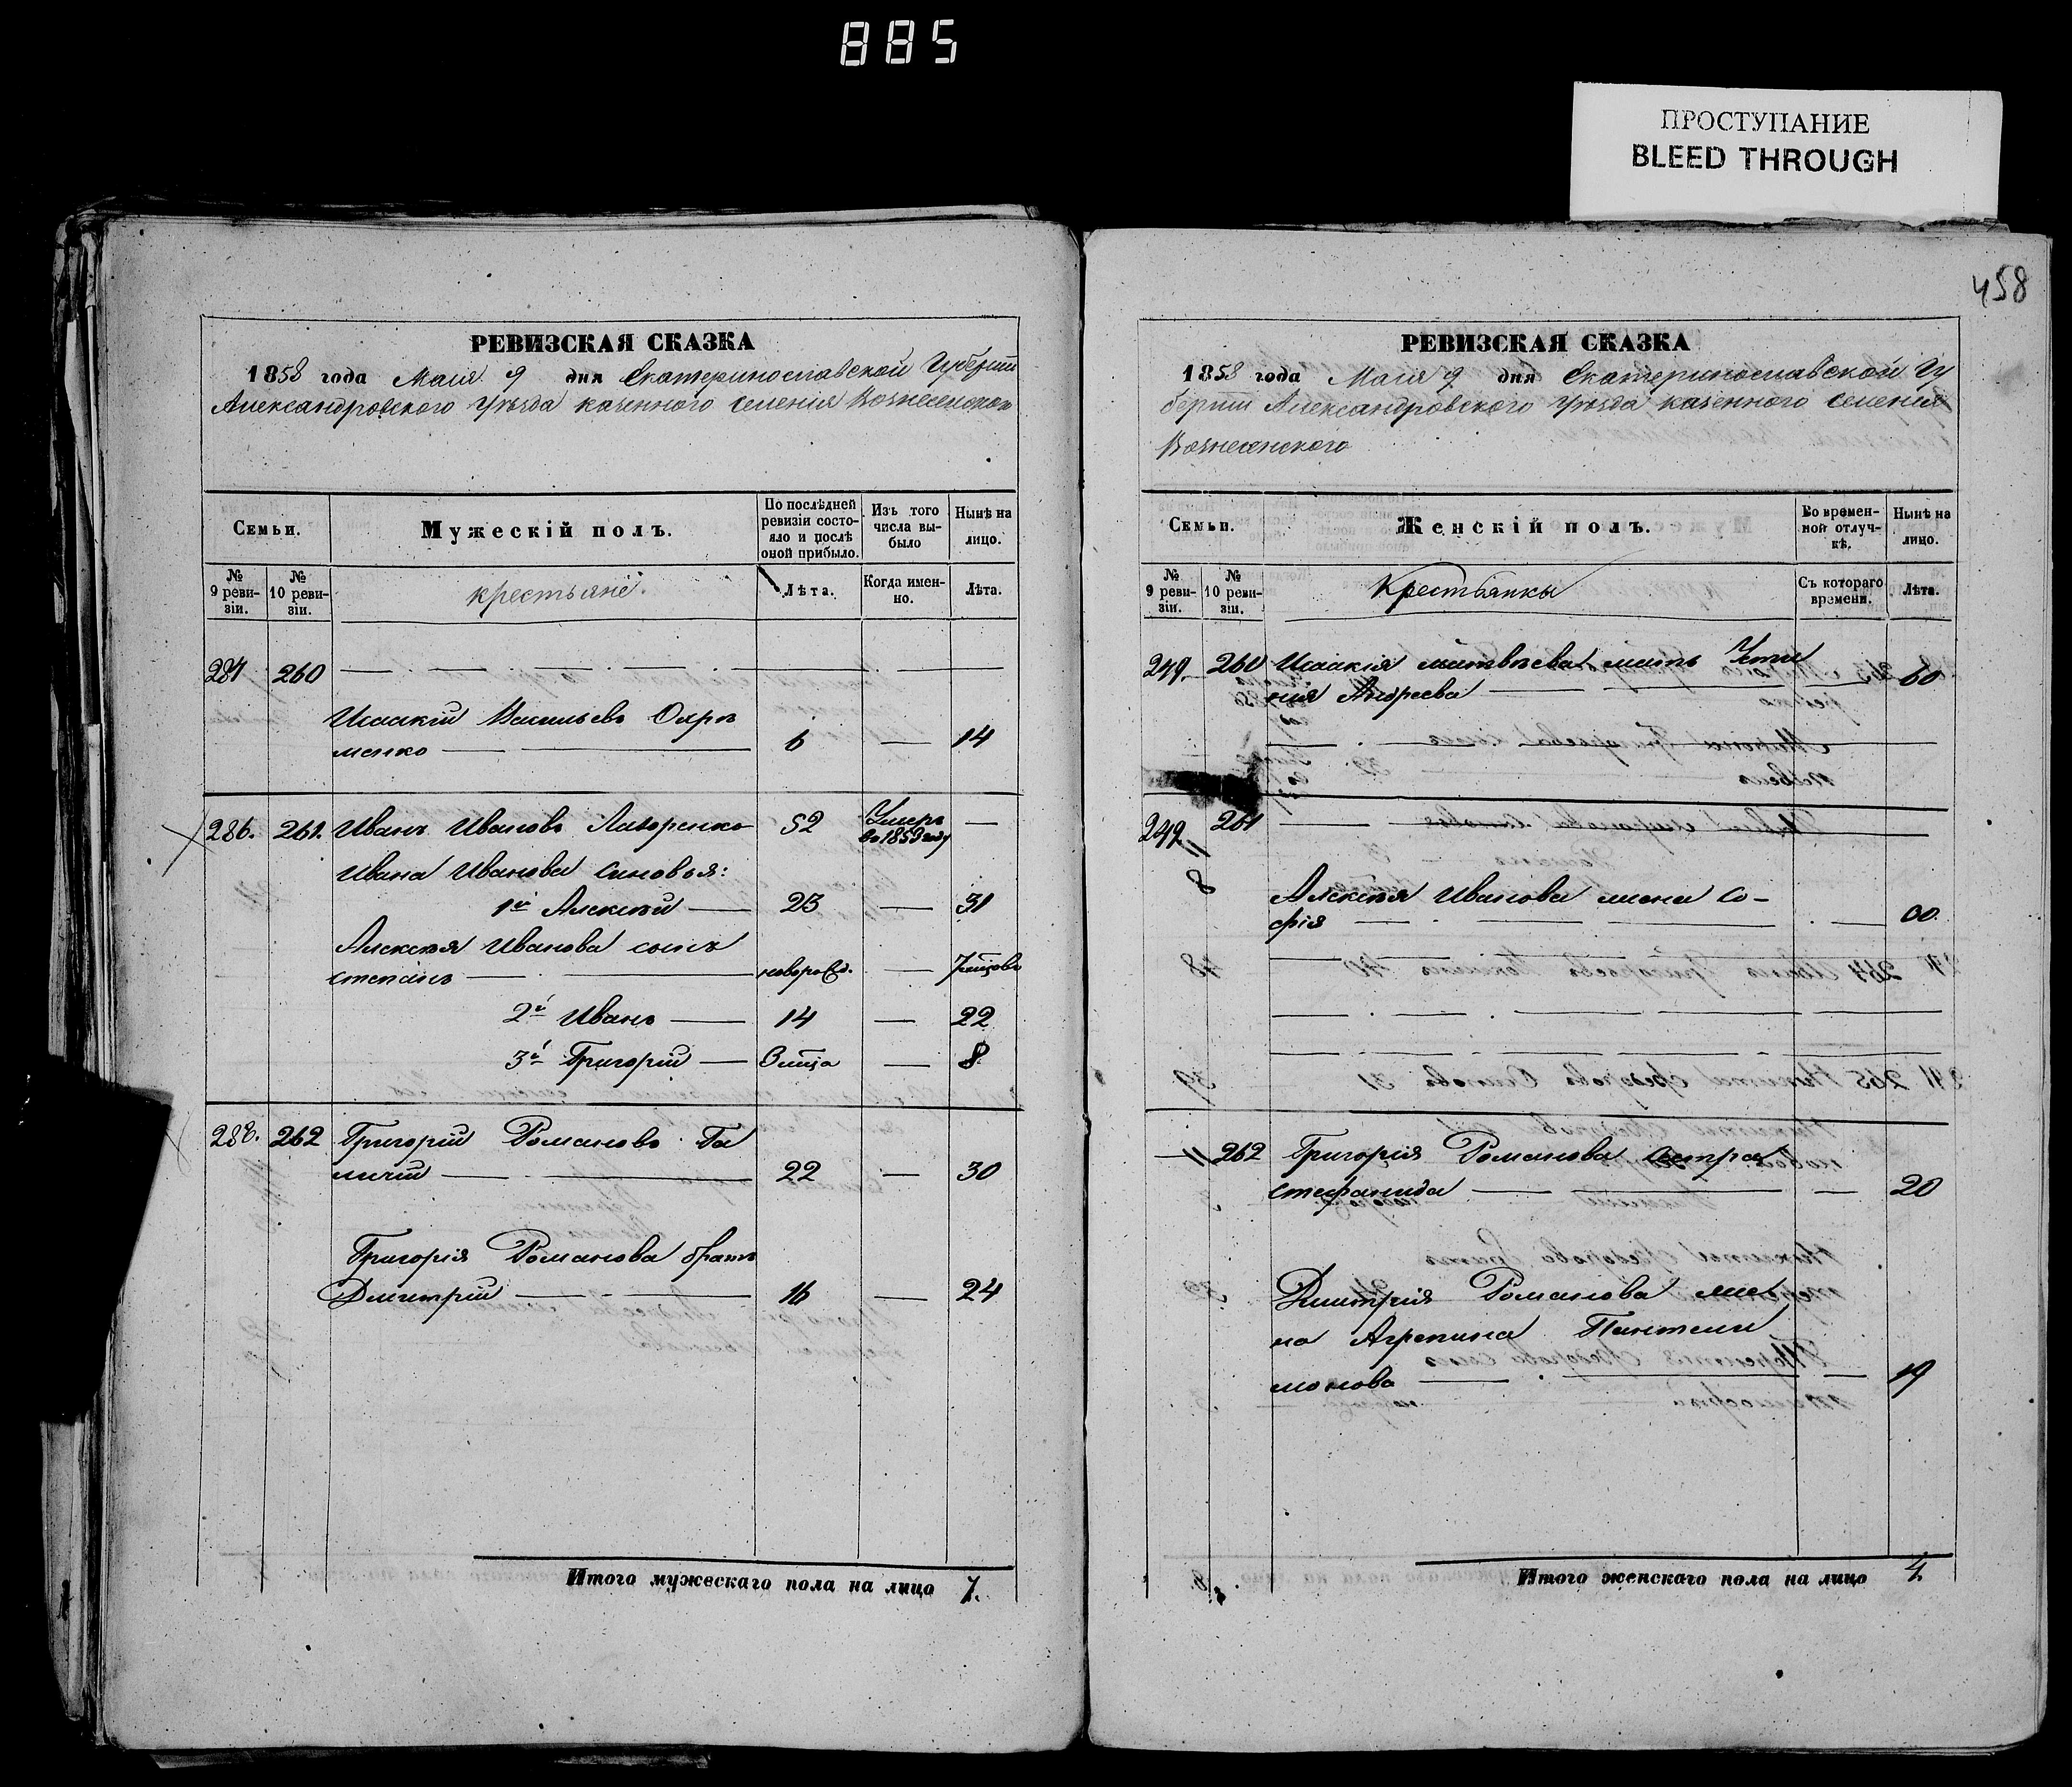 885
ПРОСТУПАНИЕ
BLEED THROUGH
458
РЕВИЗСКАЯ СКАЗКА
1858 года Маія 9 дня Екатеринославской Губерніи
Александровского уѣзда казенного селенія Вознесенского
Семьи.
Мужескій полъ.
По послѣдней ревизіи состояло и послѣ оной прибыло.
Изъ того числа выбыло
Нынѣ на лицо.
№ 9 ревизіи.
№ 10 ревизіи.
крестьяне.
Лѣта.
Когда именно.
Лѣта.
284 260
Исаакій Васильевъ
менко 6 — 14
286. 261. Иванъ Ивановъ Лазоренко 52 Умеръ въ 1853 году —
Ивана Иванова сыновья:
1й Алексѣй — 23 — 31
Алексѣя Иванова сынъ
степанъ — новорожд. —
2й Иванъ — 14 — 22
3й Григорій — — 8
288. 262 Григорій Романовъ Га
личій — 22 — 30
Григорія Романова братъ
Дмитрій — 16 — 24
Итого мужескаго пола на лицо 7.
РЕВИЗСКАЯ СКАЗКА
1858 года Маія 9 дня Екатеринославской Гу
берніи Александровского уѣзда казенного селенія
Вознесенского
Семьи.
Женскій полъ.
Во временной отлучкѣ.
Нынѣ на лицо.
№ 9 ревизіи.
№ 10 ревизіи.
Крестьянки
Съ котораго времени.
Лѣта.
249. 260 Исаакія мать Усти
нія Андреева — 60
249 261
8
Алексѣя Иванова жена Со-
фія —
11 262 Григорія Романова сестра
стефанида — 20
Дмитрія Романова же
на Агрепина Пантели
монова — 19
Итого женскаго пола на лицо 4.